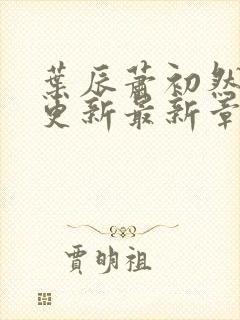 葉辰蕭初然
更新最新章
賈明祖